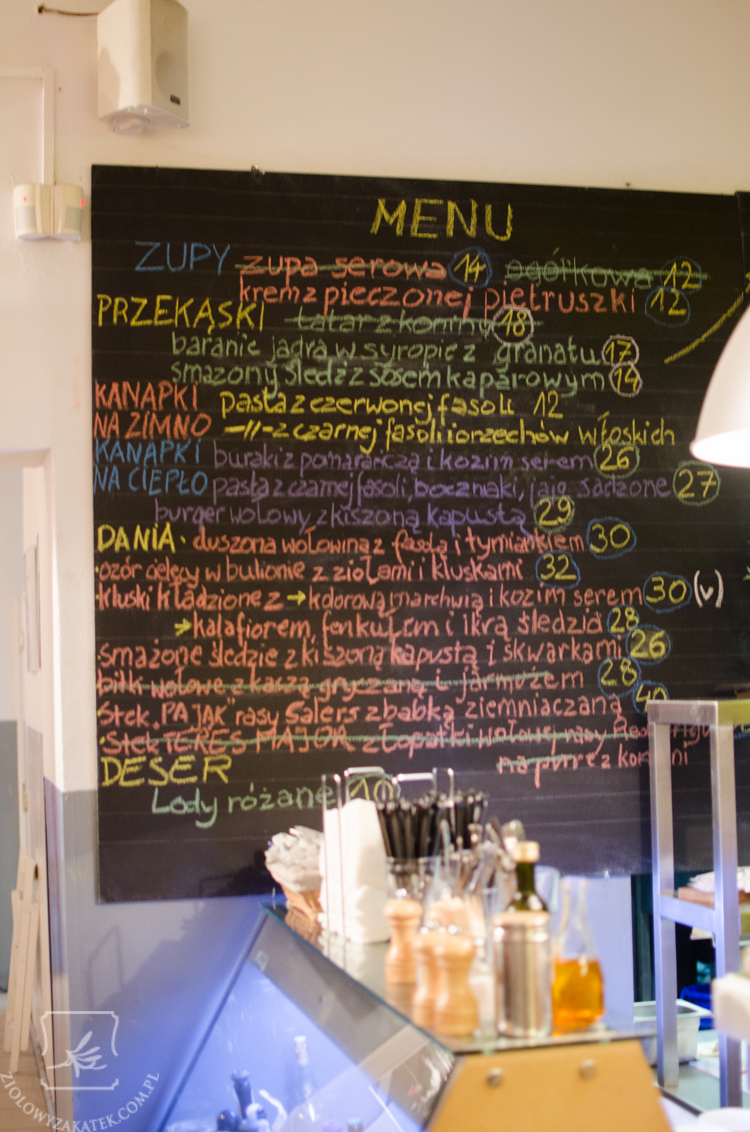 MENU
ZUPY zupa serowa 14 ogórkowa 12
krem z pieczonej pietruszki 12
PRZEKĄSKI tatar z 18
baranie jądra w syropie z granatu 17
smażony śledź z sosem kaparowym 14
KANAPKI NA ZIMNO pasta z czerwonej fasoli 12
-||- z czarnej fasoli i orzechów włoskich
KANAPKI NA CIEPŁO buraki z pomarańczą i kozim serem 26
pasta z czarnej fasoli, boczniaki, jajo sadzone 27
burger wołowy z kiszoną kapustą 29
DANIA · duszona wołowina z fasolą i tymiankiem 30
· ozór cielęcy w bulionie z ziołami i kluskami 32
· kluski kładzione z → kolorową marchwią i kozim serem 30 (v)
→ kalafiorem, fenkułem i ikrą śledzia 28
· smażone śledzie z kiszoną kapustą i skwarkami 26
bitki wołowe z kaszą gryczaną i jarmużem 28
· Stek „PAJĄK” rasy Salers z babką ziemniaczaną 40
· Stek TERES MAJOR z łopatki wołowej rasy
na purée z
DESER
Lody różane 10
ZIOLOWYZAKATEK.COM.PL